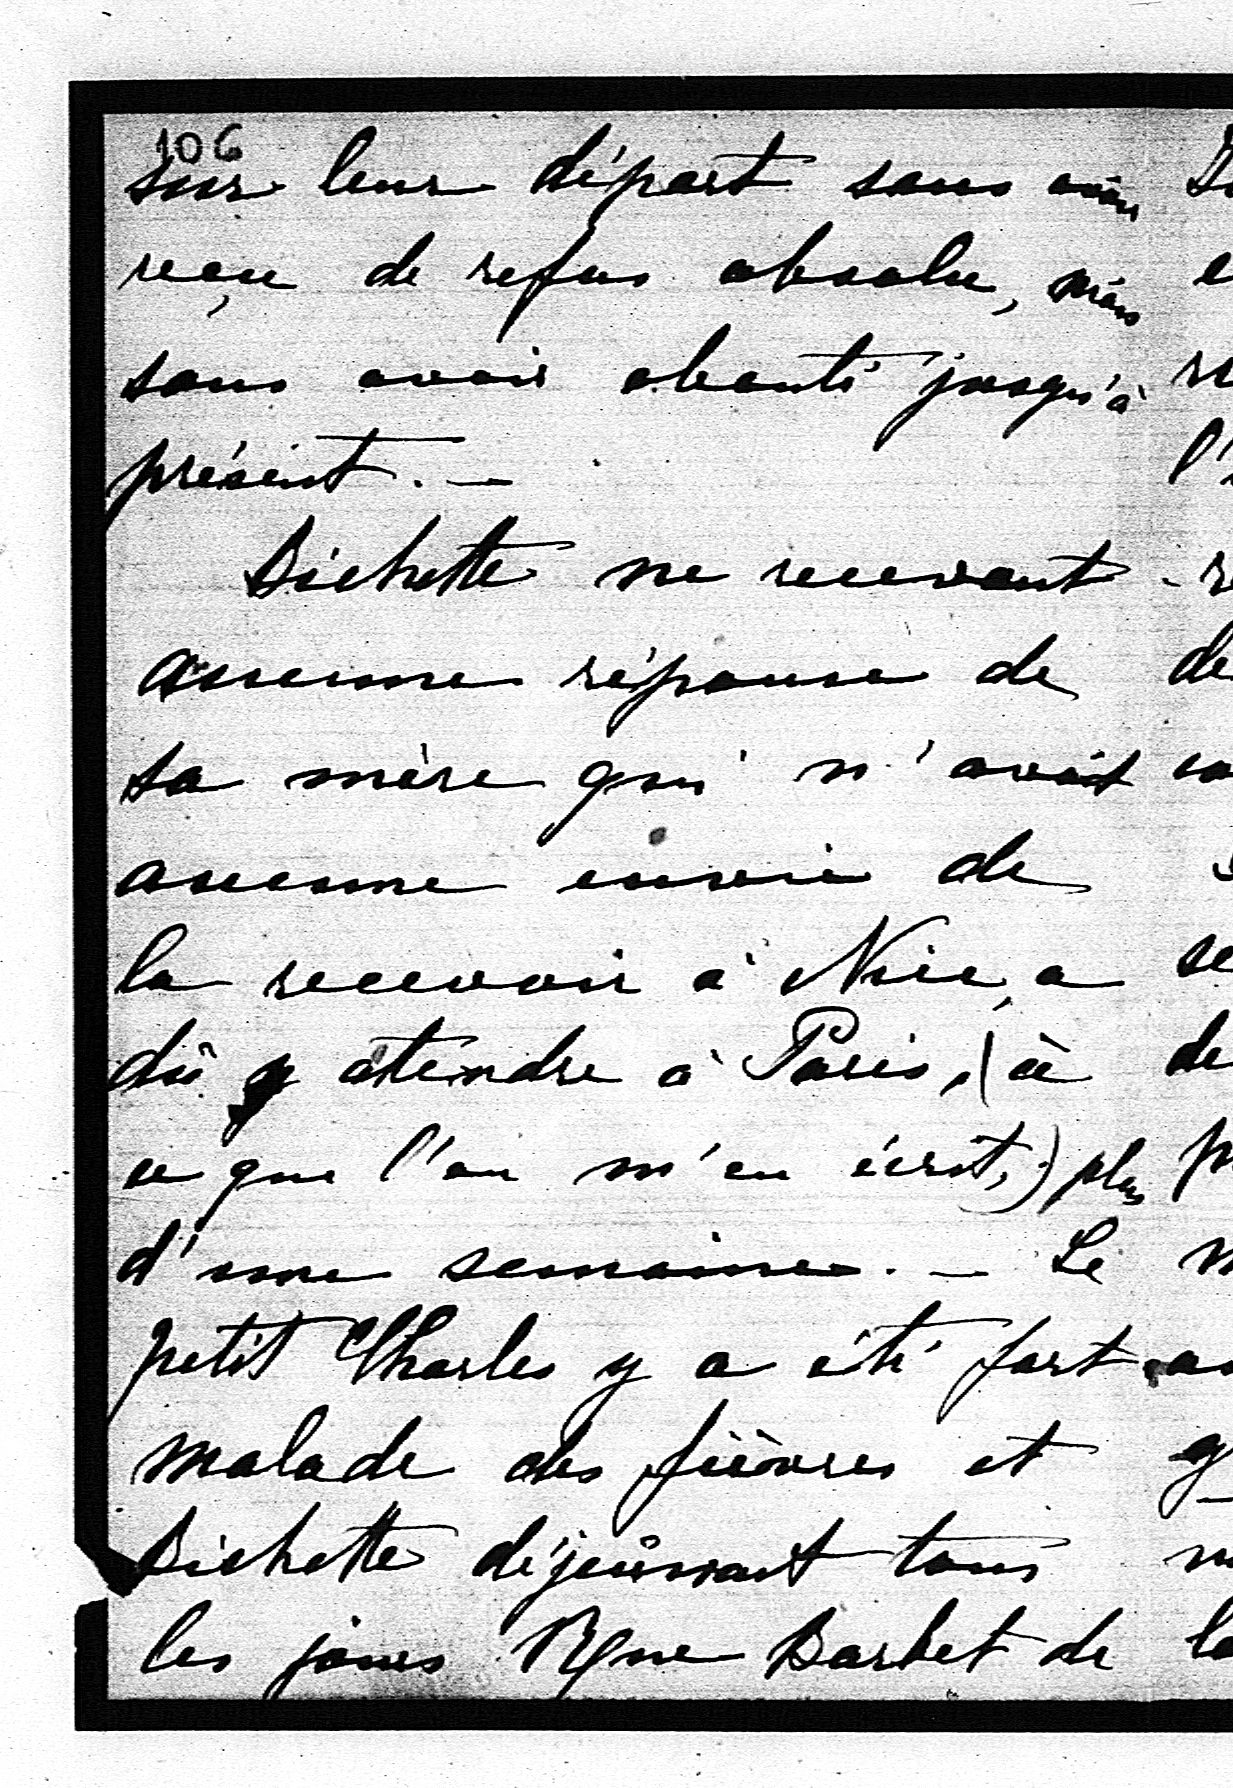 106
sur leur départ sans avoir
reçu de refus absolu, mais
sans avoir abouti jusqu'à
présent. —
Bichette ne recevant
aucune réponse de
sa mère qui n'avait
aucune envie de
la recevoir à Nice, a
dû y attendre à Paris, (à
ce que l'on m'en écrit,) plus
d'une semaine. — Le
petit Charles y a été fort
malade des fièvres et
Bichette déjeûnant tous
les jours Rue Barbet de